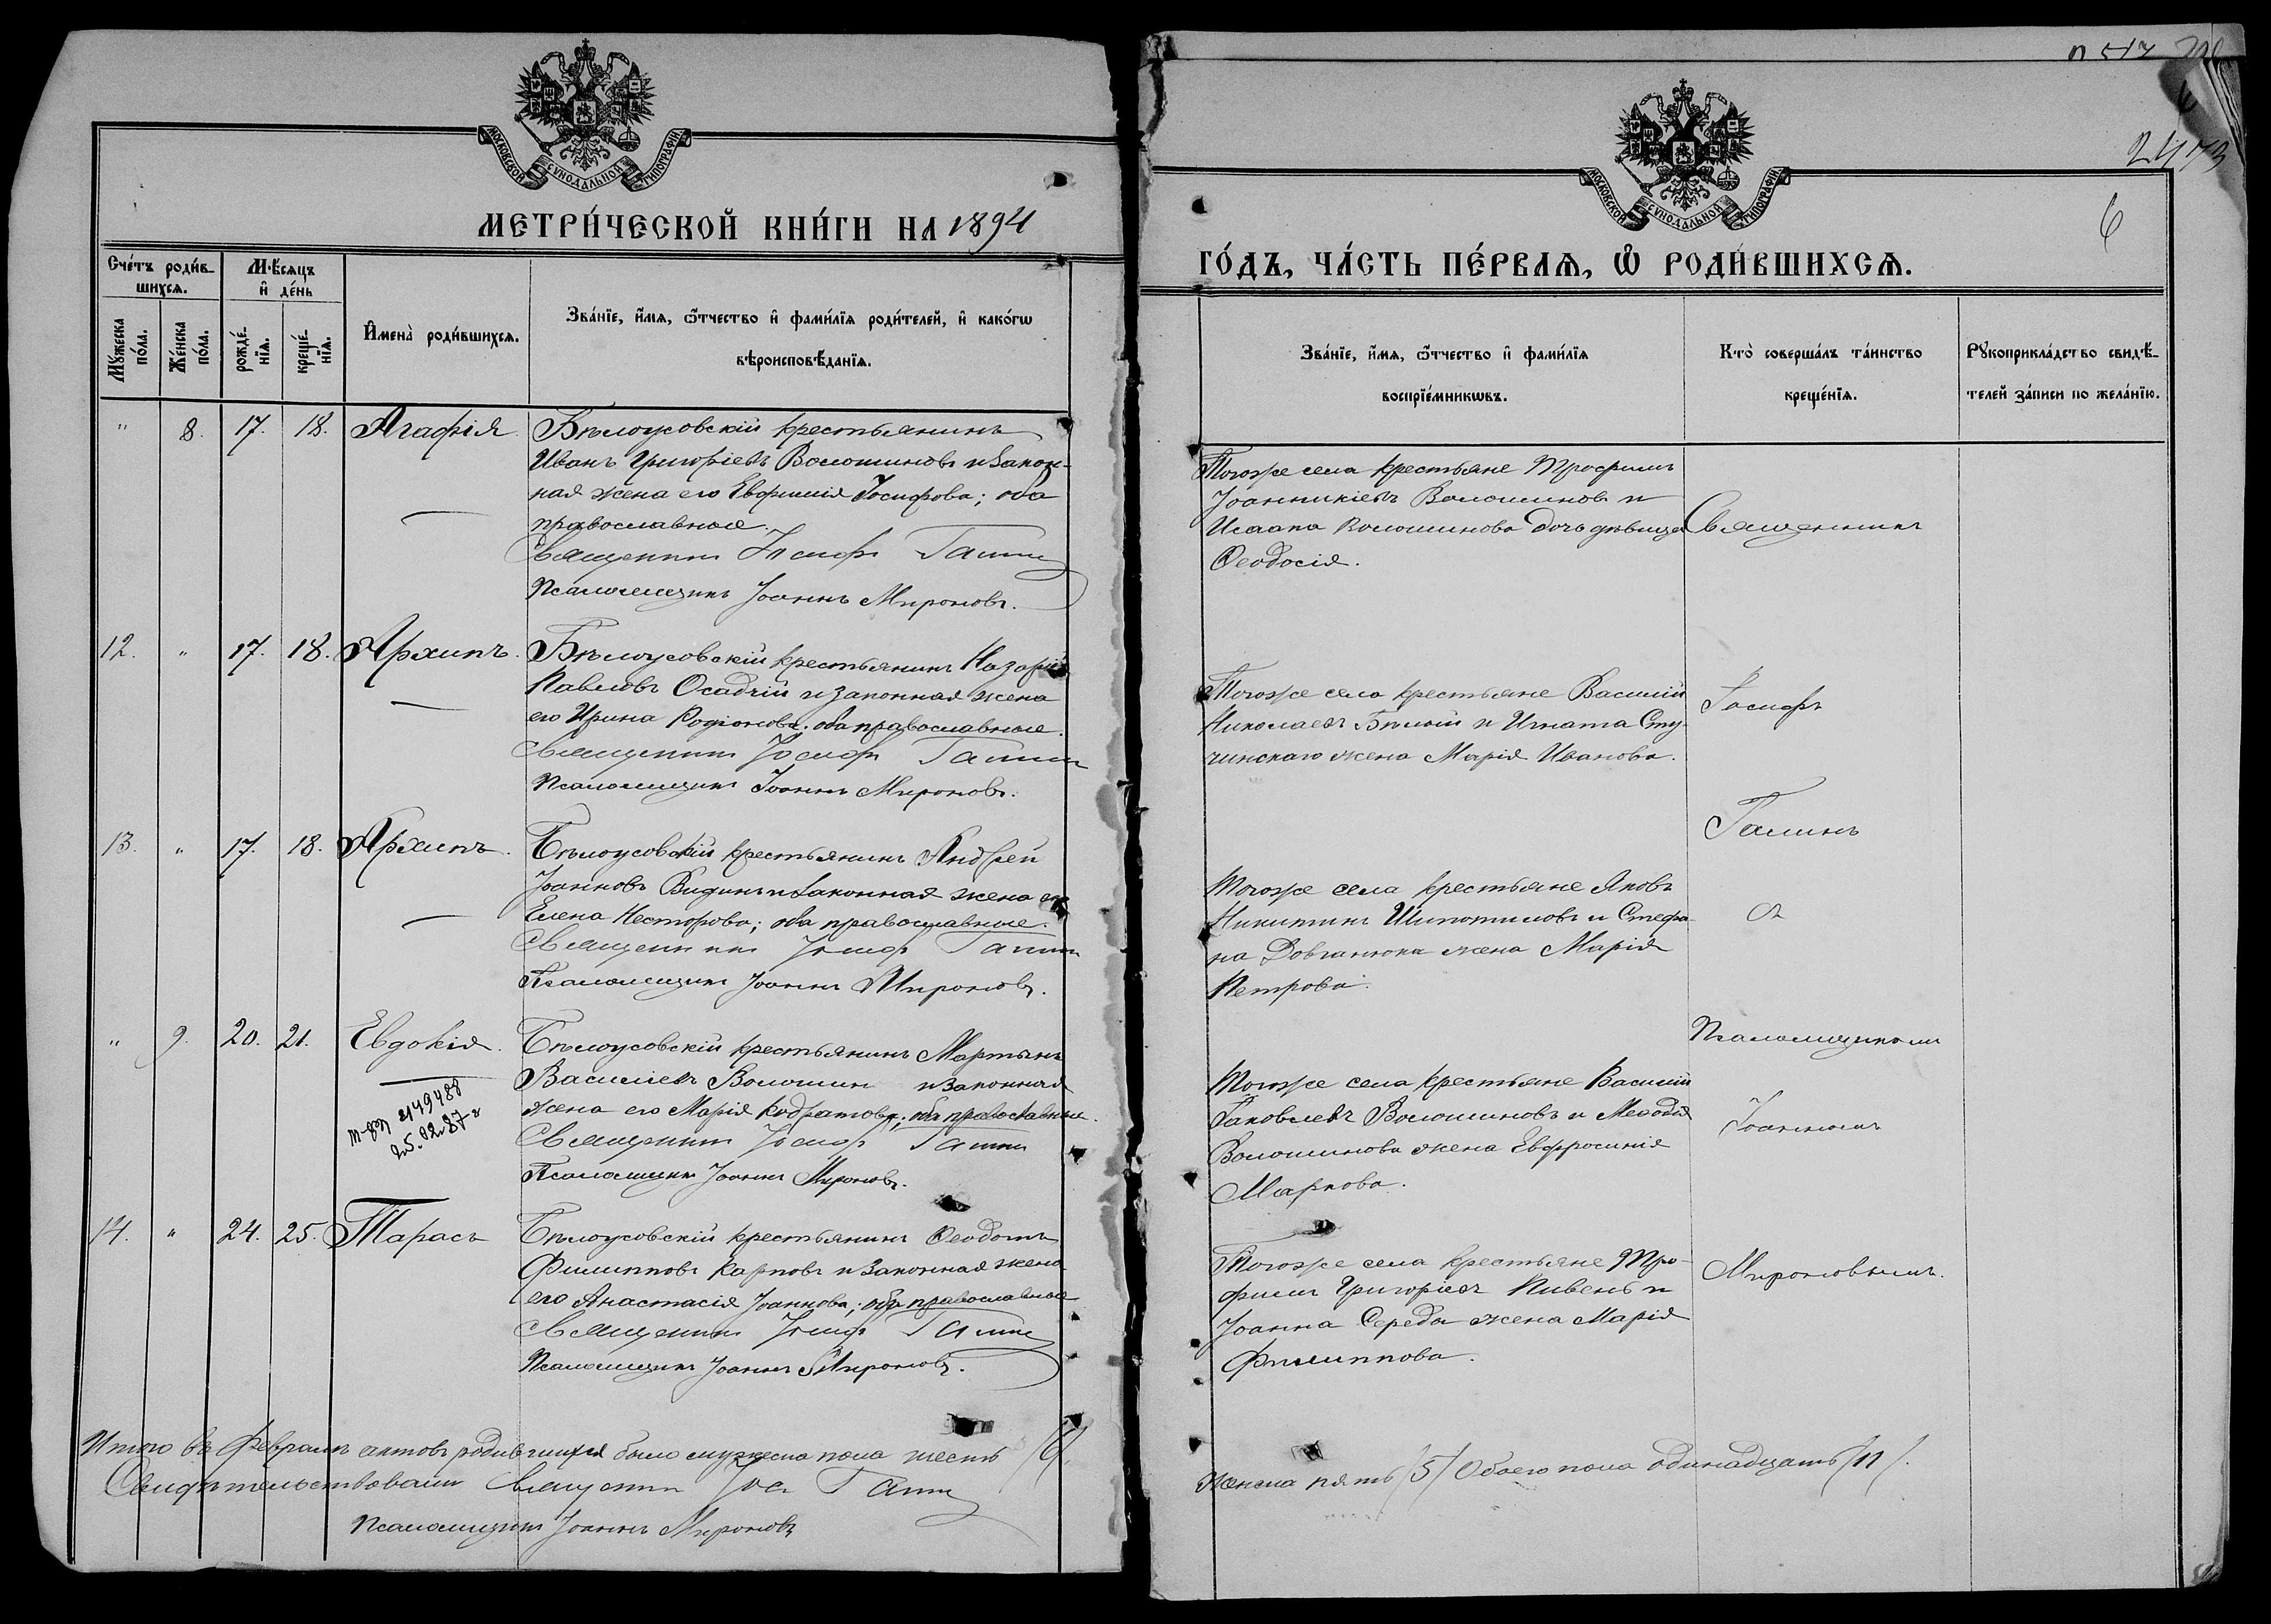 МОСКОВСКОЙ СѴНОДАЛЬНОЙ ТИПОГРАФІИ
МЕТРИ́ЧЕСКОЙ КНИ́ГИ НА 1894
Сче́тъ роди́в-
шихсѧ.
Мѣ́сѧцъ
и҆ де́нь
Мꙋ́жеска
по́ла.
Же́нска
по́ла.
рожде́-
нїѧ.
креще́-
нїѧ.
И҆мена̀ роди́вшихсѧ.
Зва́нїе, и҆́мѧ, ѻ҆́тчество и҆ фами́лїѧ роди́телей, и҆ како́гѡ
вѣроисповѣ́данїѧ.
" 8. 17. 18. Агафія
Бѣлоусовскій крестьянинъ
Иванъ Григоріевъ Волошиновъ и закон-
ная жена его Евфимія Іосифова; оба
православные.
Священникъ Іосифъ
Псаломщикъ Іоаннъ Мироновъ.
12. " 17. 18. Архипъ.
Бѣлоусовскій крестьянинъ Назарій
Павловъ Осадчій и законная жена
его Ирина Родіонова. оба православные.
Священникъ Іосифъ
Псаломщикъ Іоаннъ Мироновъ.
13. " 17. 18. Архипъ.
Бѣлоусовскій крестьянинъ Андрей
Іоанновъ и законная жена его
Елена Несторова; оба православные.
Священникъ Іосифъ
Псаломщикъ Іоаннъ Мироновъ.
" 9. 20. 21. Евдокія.
2149488
25.02.87г
Бѣлоусовскій крестьянинъ Мартынъ
Василіевъ Волошин и законная
жена его Марія Кодратова; оба православные.
Священникъ Іосифъ
Псаломщикъ Іоаннъ Мироновъ.
14. " 24. 25. Тарасъ
Бѣлоусовскій крестьянинъ Ѳеодотъ
Филипповъ Карповъ и законная жена
его Анастасія Іоаннова; оба православные
Священникъ Іосифъ
Псаломщикъ Іоаннъ Мироновъ.
Итого въ Февралѣ актовъ родившихся было мужеска пола шесть /6/.
Свидѣтельствовали Священникъ
Псаломщикъ Іоаннъ Мироновъ
МОСКОВСКОЙ СѴНОДАЛЬНОЙ ТИПОГРАФІИ
6
ГО́ДЪ, ЧА́СТЬ ПЕ́РВАѦ, Ѡ҆ РОДИ́ВШИХСѦ.
Зва́нїе, и҆́мѧ, ѻ҆́тчество и҆ фами́лїѧ
воспрїе́мникѡвъ.
Кто̀ соверша́лъ та́инство
креще́нїѧ.
Рꙋкоприкла́дство свидѣ́-
телей за́писи по жела́нїю.
Тогоже села крестьяне Трофимъ
Іоанникіевъ Волошиновъ и
Исаака Волошинова дочь дѣвица
Ѳеодосія.
Священникъ
Тогоже села крестьяне Василій
Николаевъ Бѣлый и Игната Сту-
чинскаго жена Марія Иванова.
Іосифъ
Галинъ
Тогоже села крестьяне Яковъ
Никитинъ Шипотиловъ и Стефа-
на Довганюка жена Марія
Петрова.
съ
Псаломщикомъ
Тогоже села крестьяне Василій
Іаковлевъ Волошиновъ и Меѳодія
Волошинова жена Евфросинія
Маркова.
Іоанномъ
Тогоже села крестьяне Тро-
фимъ Григоріевъ Пивень и
Іоанна Середы жена Марія
Филиппова.
Мироновымъ.
Женска пять /5/ Обоего пола одинадцать /11/.